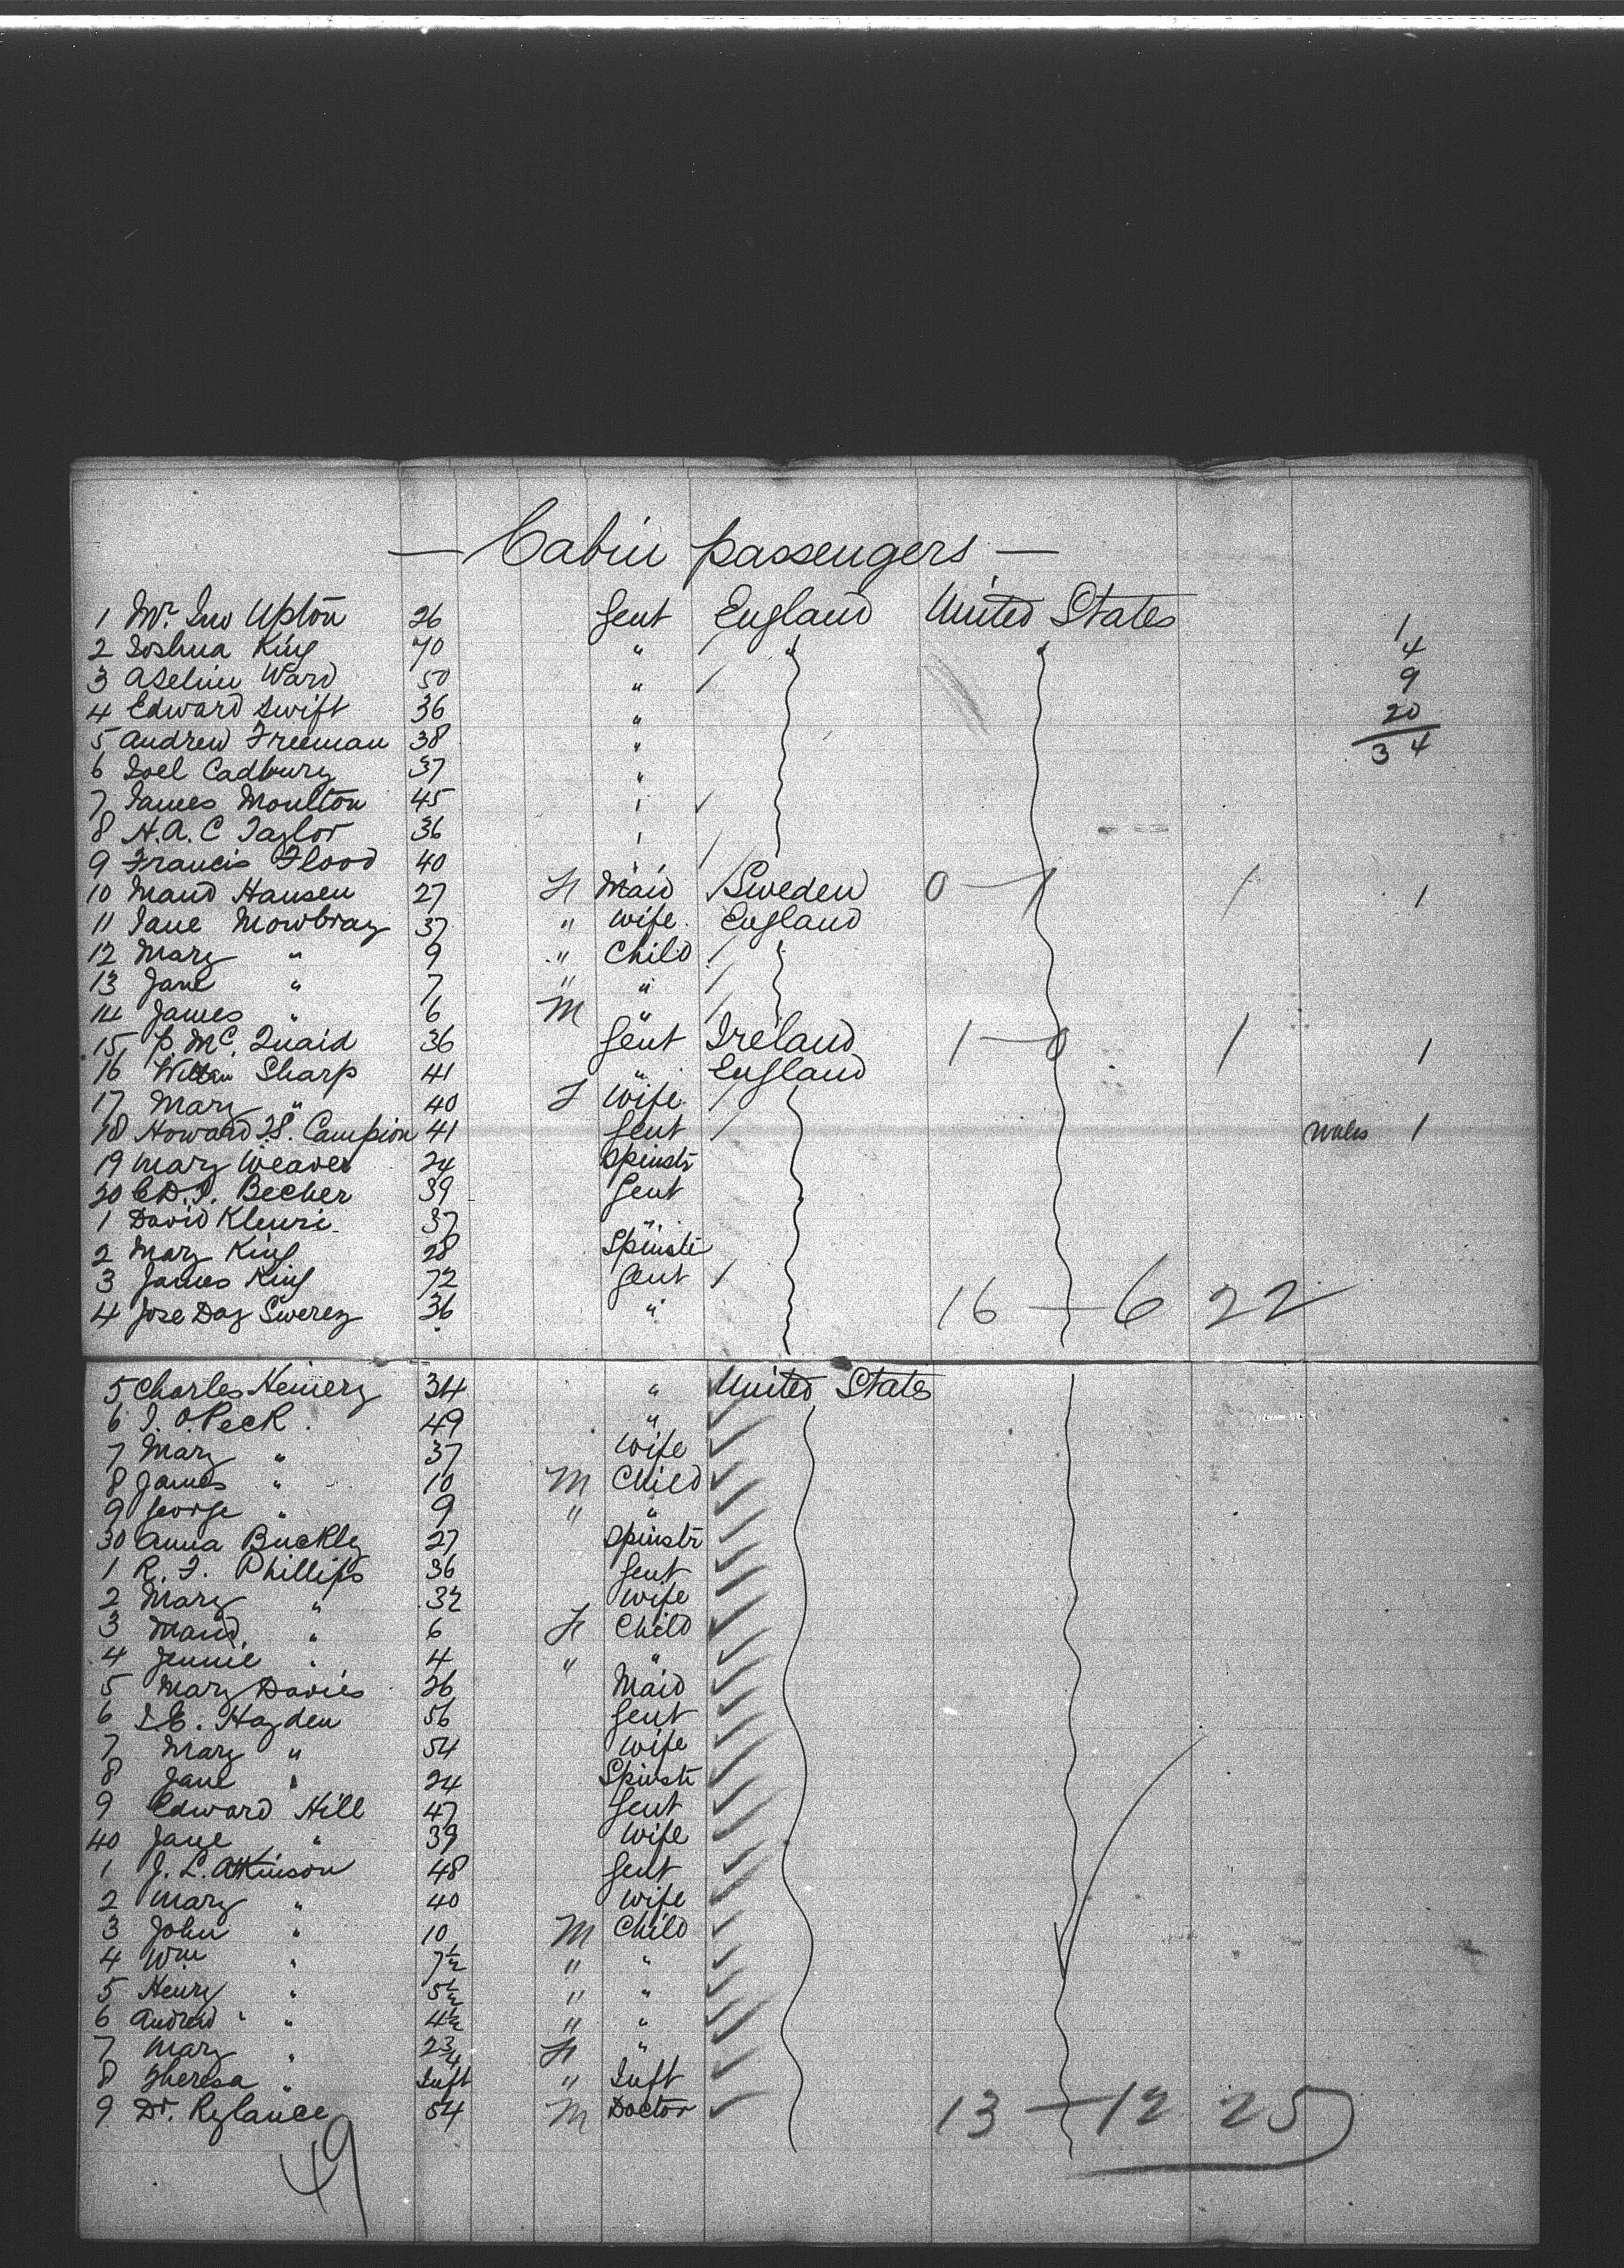 — Cabin passengers —
1 Mr. Jno Upton 26 Gent England United States
2 Joshua King 70 " / " " 1
3 Aselin Ward 50 " / 4
4 Edward Swift 36 " 9
5 Andrew Freeman 38 " 20
6 Joel Cadbury 37 " 34
7 James Moulton 45 " ✓
8 H. A. C Taylor 36 "
9 Francis Flood 40 " /
10 Maud Hansen 27 F Maid / Sweden 0 — 1 1 1
11 Jane Mowbray 37 " Wife England
12 Mary " 9 " Child /
13 Jane " 7 " " /
14 James " 6 M " /
15 P. McQuaid 36 Gent Ireland 1 — 0 1 1
16 William Sharp 41 " England
17 Mary " 40 F Wife /
18 Howard Campion 41 Gent / Wales 1
19 Mary Weaver 24 Spinstr
20 C. D. J. Becher 39 Gent
1 David 37 "
2 Mary King 28 Spinstr
3 James King 72 Gent /
4 Jose Daz 36 " 16 — 6 22
5 Charles Hemery 34 " ✓ United States
6 J. O. Peck 49 " ✓
7 Mary " 37 Wife ✓
8 James " 10 M Child ✓
9 George " 9 " " ✓
30 Anna Buckley 27 Spinstr ✓
1 R. F. Phillips 36 Gent ✓
2 Mary " 32 Wife ✓
3 Maud " 6 F Child ✓
4 Jennie " 4 " " ✓
5 Mary Davies 26 Maid ✓
6 J. E. Hayden 56 Gent ✓
7 Mary " 54 Wife ✓
8 Jane " 24 Spinstr ✓
9 Edward Hill 47 Gent ✓
40 Jane " 39 Wife ✓
1 J. L. Atkinson 48 Gent ✓
2 Mary " 40 Wife ✓
3 John " 10 M Child ✓
4 Wm " 7½ " " ✓
5 Henry " 5½ " " ✓
6 Andrew " " 4½ " " ✓
7 Mary " 2¾ F " ✓
8 Theresa " Inft " Inft ✓
9 Dr. Rylance 54 M Doctor ✓ 13 — 12 25
49